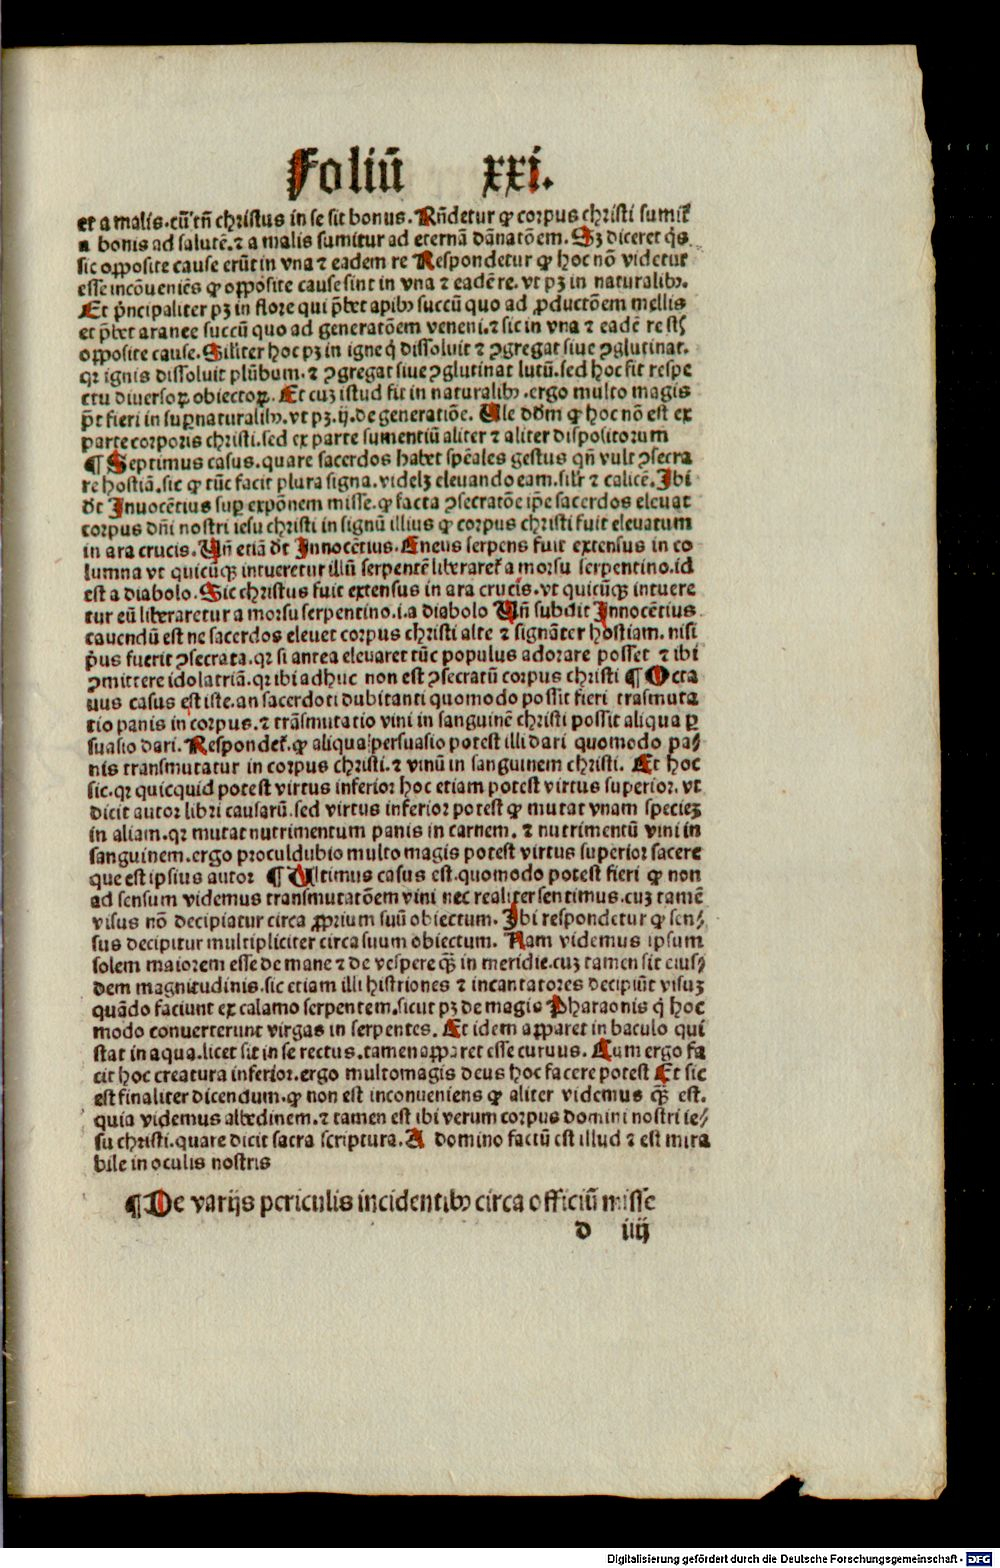 Foliū xxi.
et a malis.cū tn̄ christus in se sit bonus. Rn̄detur ꝙ corpus christi sumit̄
a bonis ad salutē.⁊ a malis sumitur ad eternā dānatōem. Sꝫ diceret qͥs
sic opposite cause erūt in vna ⁊ eadem re Respondetur ꝙ hoc nō videtur
esse incōueniēs ꝙ opposite cause sint in vna ⁊ eadē re. vt pꝫ in naturalibꝰ.
Et pͥncipaliter pꝫ in flore qui p̄bet apibꝰ succū quo ad ꝓductōem mellis
et p̄bet aranee succū quo ad generatōem veneni.⁊ sic in vna ⁊ eadē re st̄
opposite cause. Silīter hoc pꝫ in igne qͥ dissoluit ⁊ ꝯgregat siue ꝯglutinat.
qꝛ ignis dissoluit plūbum.⁊ ꝯgregat siue ꝯglutinat lutū.sed hoc fit respe
ctu diuersoꝝ obiectoꝝ. Et cuꝫ istud fit in naturalibꝰ.ergo multo magis
pōt fieri in suꝑnaturalibꝰ.vt pꝫ.ij.de generatiōe. Uel dd̄m ꝙ hoc nō est ex
parte corporis christi.sed ex parte sumentiū aliter ⁊ aliter dispositorum
¶ Septimus casus.quare sacerdos habet spēales gestus qn̄ vult ꝯsecra
re hostiā.sic ꝙ tūc facit plura signa.videlꝫ eleuando eam.silr̄ ⁊ calicē. Ibi
dt̄ Innocētius suꝑ expōnem misse.ꝙ facta ꝯsecratōe ip̄e sacerdos eleuat
corpus dn̄i nostri iesu christi in signū illius ꝙ corpus christi fuit eleuatum
in ara crucis. Un̄ etiā dt̄ Innocētius. Eneus serpens fuit extensus in co
lumna vt quicūqꝫ intueretur illū serpentē liberaret̄ a morsu serpentino.id
est a diabolo. Sic christus fuit extensus in ara crucis.vt quicūqꝫ intuere
tur eū liberaretur a morsu serpentino.i.a diabolo Un̄ subdit Innocētius
cauendū est ne sacerdos eleuet corpus christi alte ⁊ signāter hostiam. nisi
pͥus fuerit ꝯsecrata.qꝛ si antea eleuaret tūc populus adorare posset ⁊ ibi
ꝯmittere idolatriā.qꝛ ibi adhuc non est ꝯsecratū corpus christi ¶ Octa
uus casus est iste.an sacerdoti dubitanti quomodo possit fieri trāsmuta
tio panis in corpus.⁊ trāsmutatio vini in sanguinē christi possit aliqua ꝑ
suasio dari. Respondet̄.ꝙ aliqua persuasio potest illi dari quomodo pa⸗
nis transmutatur in corpus christi.⁊ vinū in sanguinem christi. Et hoc
sic.qꝛ quicquid potest virtus inferior hoc etiam potest virtus superior.vt
dicit autor libri causarū.sed virtus inferior potest ꝙ mutat vnam specieꝫ
in aliam.qꝛ mutat nutrimentum panis in carnem.⁊ nutrimentū vini in
sanguinem.ergo proculdubio multo magis potest virtus superior facere
que est ipsius autor ¶ Ultimus casus est.quomodo potest fieri ꝙ non
ad sensum videmus transmutatōem vini nec realiter sentimus.cuꝫ tamē
visus nō decipiatur circa ꝓprium suū obiectum. Ibi respondetur ꝙ sen⸗
sus decipitur multipliciter circa suum obiectum. Nam videmus ipsum
solem maiorem esse de mane ⁊ de vespere qꝫ̄ in meridie.cuꝫ tamen sit eius⸗
dem magnitudinis.sic etiam illi histriones ⁊ incantatores decipiūt visuꝫ
quādo faciunt ex calamo serpentem.sicut pꝫ de magis Pharaonis qͥ hoc
modo conuerterunt virgas in serpentes. Et idem apparet in baculo qui
stat in aqua.licet sit in se rectus.tamen apparet esse curuus. Cum ergo fa
cit hoc creatura inferior.ergo multomagis deus hoc facere potest Et sic
est finaliter dicendum.ꝙ non est inconueniens ꝙ aliter videmus qꝫ̄ est.
quia videmus albedinem.⁊ tamen est ibi verum corpus domini nostri ie⸗
su christi.quare dicit sacra scriptura. A domino factū est illud ⁊ est mira
bile in oculis nostris
¶ De varijs periculis incidentibꝰ circa officiū misse
d iiij
Digitalisierung gefördert durch die Deutsche Forschungsgemeinschaft - DFG